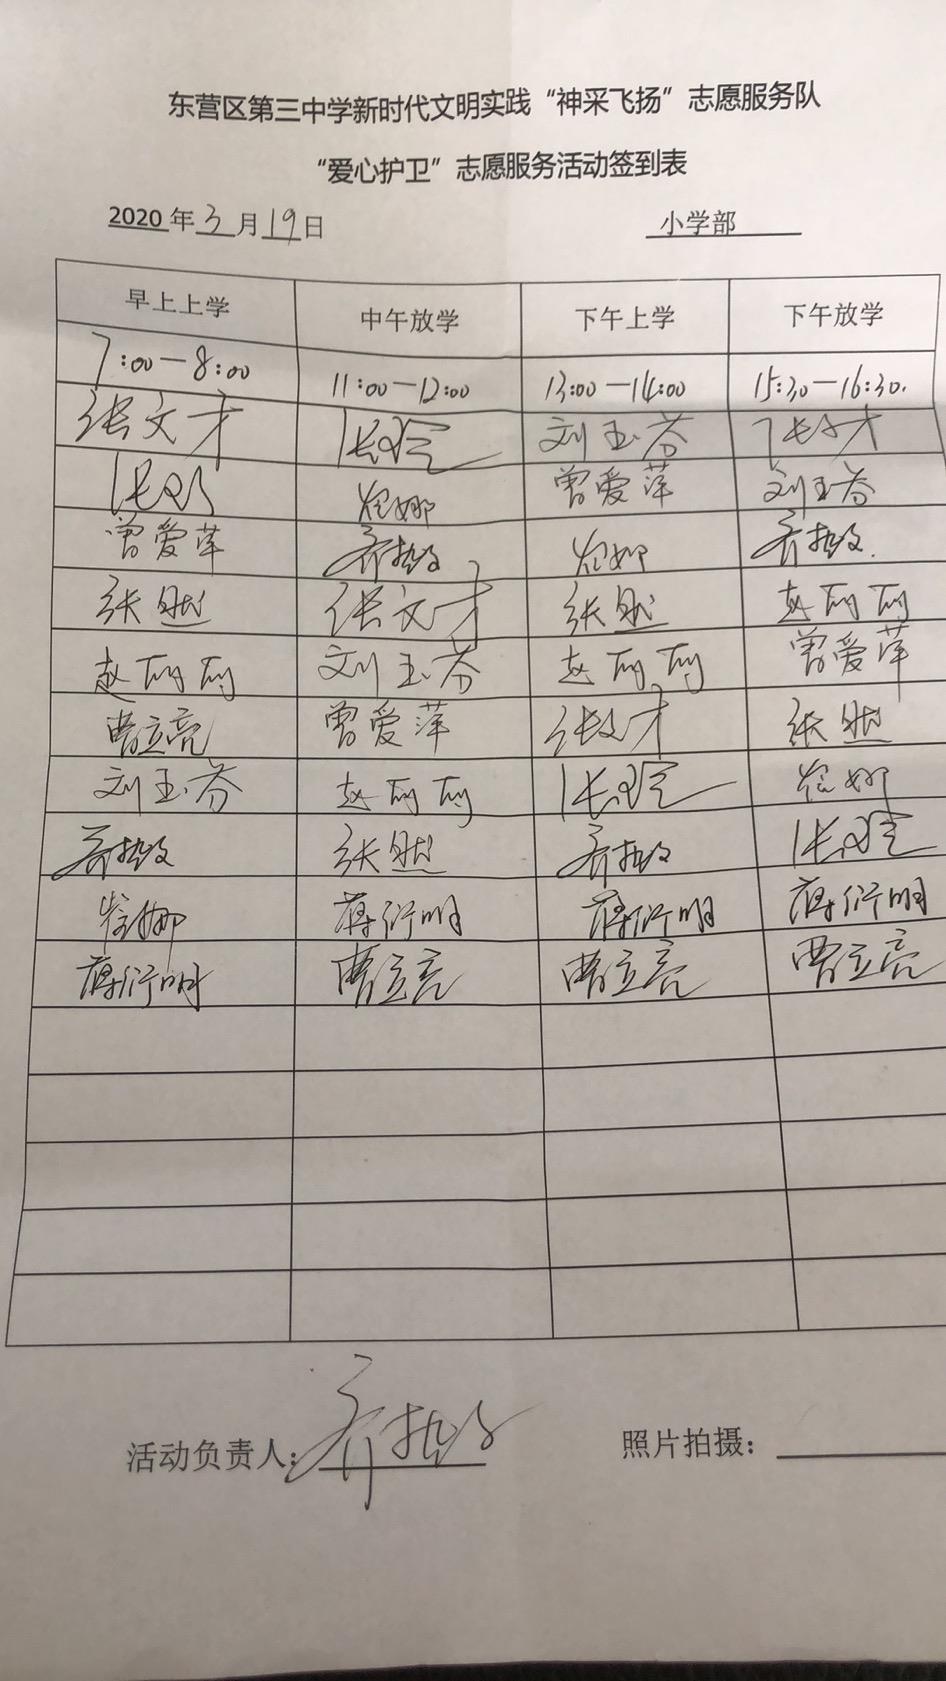 东营区第三中学新时代文明实践“神采飞扬”志愿服务队
“爱心护卫”志愿服务活动签到表
2020年3月19日 小学部
早上上学 中午放学 下午上学 下午放学
7:00—8:00 11:00—12:00 13:00—14:00 15:30—16:30.
张文才 张 刘玉芬 张文才
张 崔娜 曾爱萍 刘玉芬
曾爱萍 齐 崔娜 齐
张 张文才 张 赵丽丽
赵丽丽 刘玉芬 赵丽丽 曾爱萍
曹立亮 曾爱萍 张文才 张
刘玉芬 赵丽丽 张 崔娜
齐 张 齐 张
崔娜 蒋衍明 蒋衍明 蒋衍明
蒋衍明 曹立亮 曹立亮 曹立亮
活动负责人: 齐 照片拍摄: